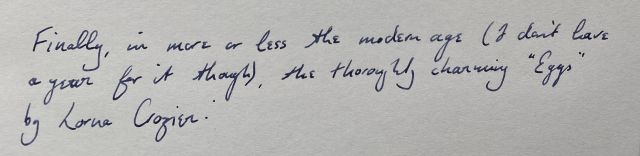 Finally, in more or less the modern age (I don't have
a year for it though), the thoroughly charming "Eggs"
by Lorna Crozier: